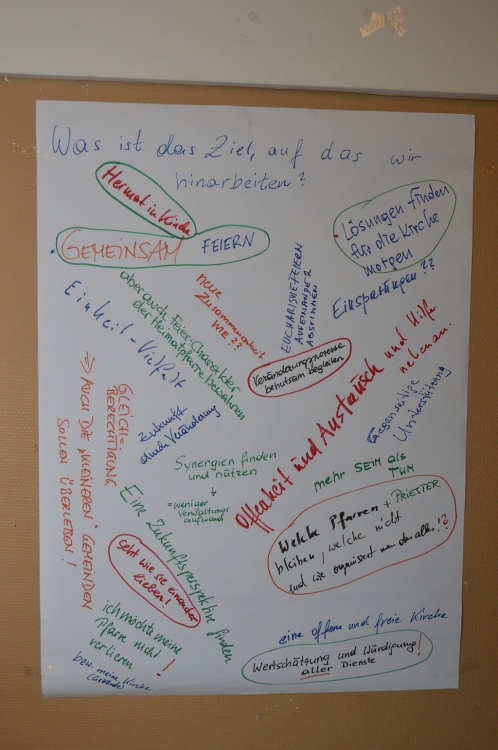 Was ist das Ziel, auf das wir
hinarbeiten?
Heimat in Kirche
GEMEINSAM FEIERN
• Lösungen finden
für die Kirche
morgen
Einsparungen??
EUCHARISTIEFEIERN
AUFEINANDER
ABSTIMMEN
neue
Zusammenarbeit
WIE??
aber auch Feier-Charakter
der Heimatpfarre bewahren
Einheit - Vielfalt
Veränderungsprozesse
behutsam begleiten
Offenheit und Austausch und Hilfe
nehmen.
Gegenseitige
Unterstützung
GLEICH=
BERECHTIGUNG
⇒ AUCH DIE "KLEINEREN" GEMEINDEN
SOLLEN ÜBERLEBEN!
Zukunft
durch Veränderung
Synergien finden
und nützen
↓
= weniger
Verwaltungs
aufwand
mehr SEIN als
TUN
Welche Pfarren + PRIESTER
bleiben, welche nicht
und wie organisiert man das alles!?
Eine Zukunftsperspektive finden
Seht wie sie einander
lieben!
ich möchte meine
Pfarre nicht
verlieren!
bzw. meine Kirche
(Gebäude)
eine offene und freie Kirche
Wertschätzung und Würdigung!
aller Dienste